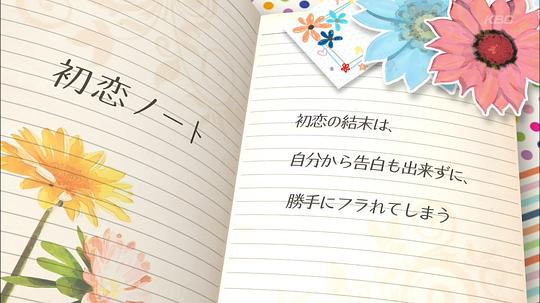 KBC
初恋ノート
初恋の結末は、
自分から告白も出来ずに、
勝手にフラれてしまう